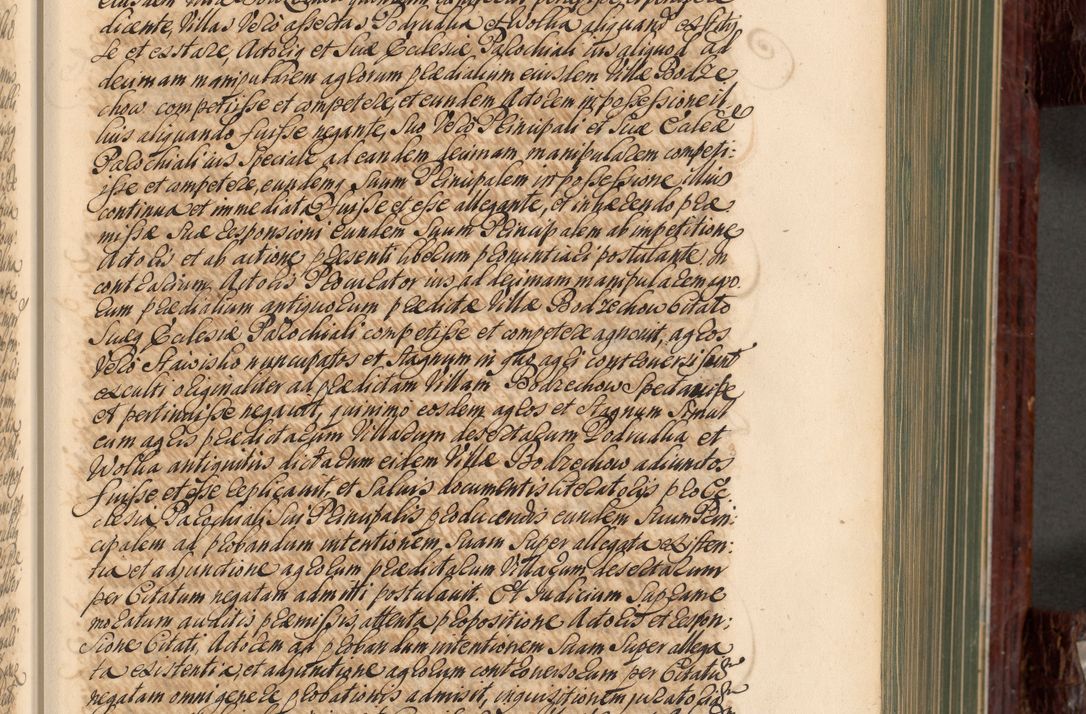 dicente, Villas Vero assertas Podrudlia et Wolua aliquando exstitis
se et esstare, Actoris et Suæ Ecclesiæ Parochiali ius aliquod ad
decimam manipularem agrorum prædialium eiusdem Villæ Bodze
chow competiisse et competere, et eundem Actorem in possessione il
lius aliquando fuisse negante, Suo Vero Principali et Suæ Ecclesiæ
Parochiali ius Speciale ad eandem decimam manipularem competi:
isse et competere, eundemq Suum Principalem in possessione illius
continua et immediata fuisse et esse allegante, et inhærendo præ
missæ Suæ responsioni eundem Suum Principalem ab impetitione
Actoris et ab actione præsenti liberum pronuntiari postulante, in
contrarium, Actoris Procurator ius ad decimam manipularem agro
rum prædialium antiquorum prædictæ Villæ Bodzechow Citato
Suæq Ecclesiæ Parochiali competisse et competere agnouit, agros
Vero Stawisko nuncupatos et Stagnum in quo agri controuersi sunt
exculti originaliter ad prædictam Villam Bodzechow Spectauisse
et pertinuisse negauit, quinimo eosdem agros et Stagnum Simul
cum agris prædictarum Villarum desertarum Podrudlia et
Wolua antiquitus dictarum eidem Villæ Bodzechow adiunctos
fuisse et esse explicauit, et Saluis documentis literatoriis pro Ec:
clesia Parochiali Sui Principalis producendis eundem Suum Prin:
cipalem ad probandum intentionem Suam Super allegata existen:
tia et adjunctione agrorum prædictarum Villarum desertarum
per Citatum negatam admitti postulauit. Et Iudicium Sapreme
moratum auditis præmissis attenta propositione Actoris et respon:
sione Citati, Actorem ad probandum intentionem Suam Super allega
ta existentia, et adjunctione agrorum controuersorum per Citatum
negatam omni genere probationis admisit, inquisitionem juratoriam